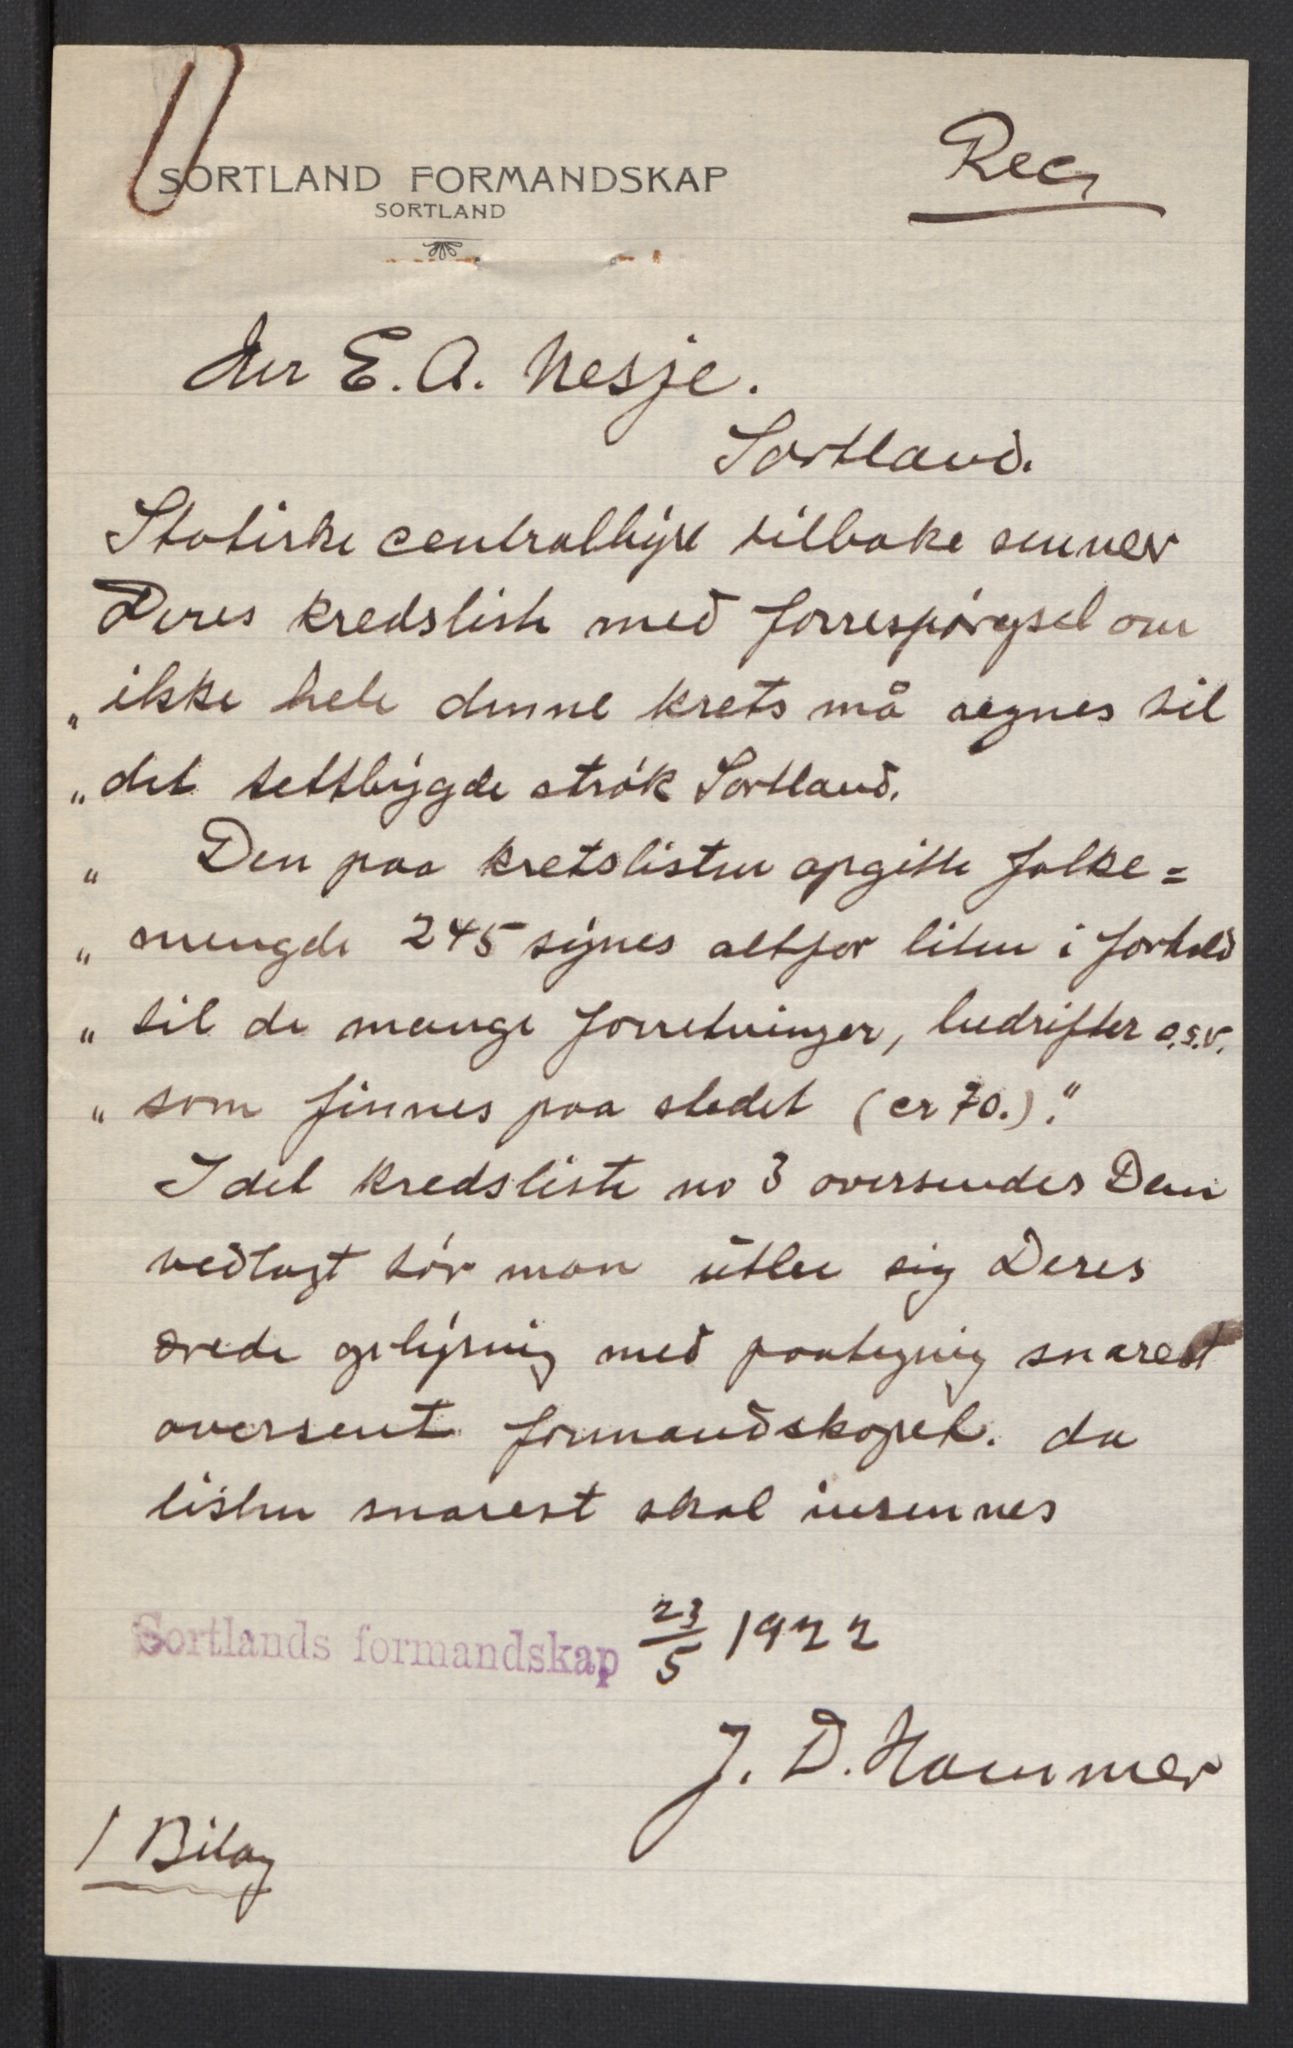 SORTLAND FORMANDSKAP
SORTLAND
Rec
Herr E. A. Nesje.
Sortland.
Statiske centralbyrå tilbake senner
Deres kredsliste med forrespørgsel om
„ ikke hele denne krets må regnes til
„ det tettbygde strøk Sortland.
„ Den paa kretslisten opgitte folke=
„ mengde 245 synes altfor liten i forhold
„ til de mange forretninger, bedrifter o.s.v.
„ som finnes paa stedet (cr 70.)."
I det kredsliste no 3 oversendes Dem
vedlagt tør man utbee sig Deres
ærede oplysning med paategnig snarest
oversent formandskapet. da
listen snarest skal insennes
Sortlands formandskap 23/5 1922
J. D. Hammer
1 Bilag